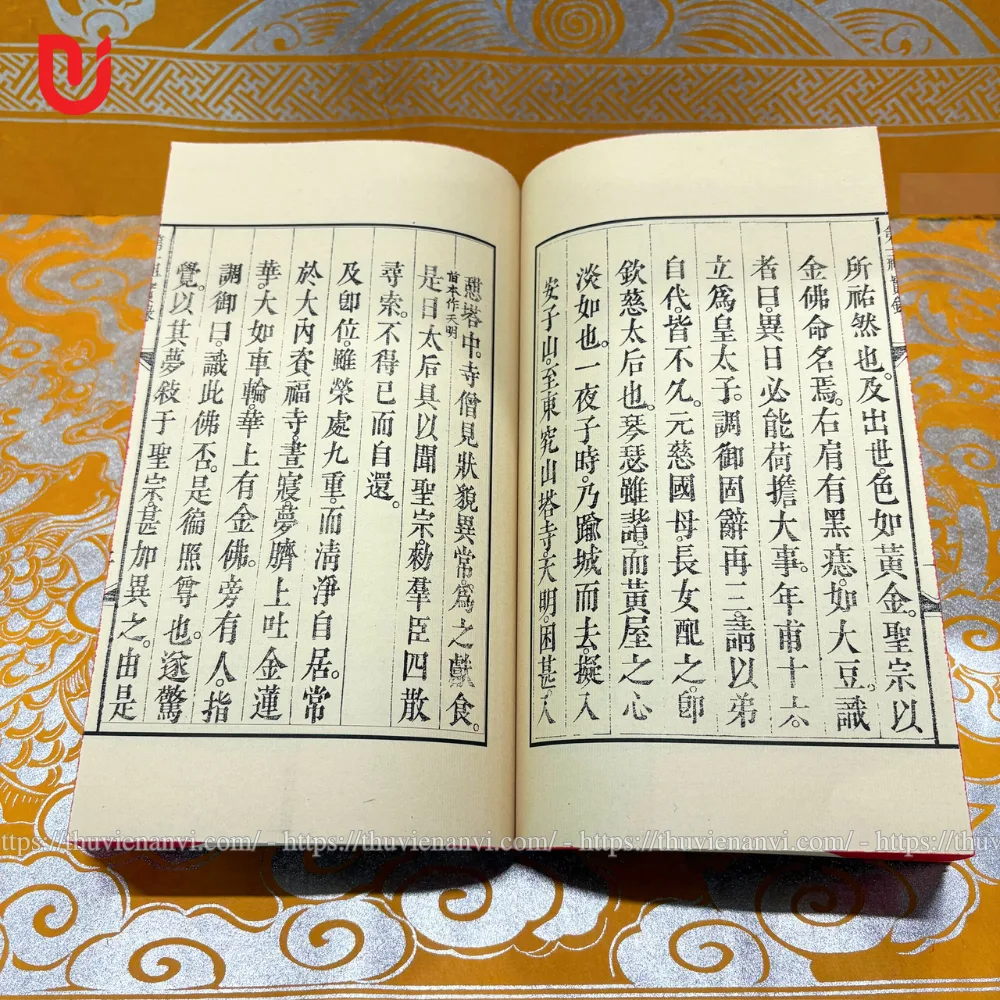 所祐然也。及出世。色如黃金。聖宗以
金佛命名焉。右肩有黑痣。如大豆。識
者曰。異日必能荷擔大事。年甫十六。
立爲皇太子。調御固辭再三。請以弟
自代。皆不久。元慈國母。長女配之。卽
欽慈太后也。琴瑟雖諧。而黃屋之心
淡如也。一夜子時。乃踰城而去。擬入
安子山。至東究山塔寺。天明。困甚。入
憇塔中。寺僧見狀貌異常。爲之獻食。
旧本作天明
是日太后具以聞聖宗。勑羣臣四散
尋索。不得已而自還。
及卽位。雖榮處九重。而淸淨自居。常
於大內資福寺。晝寢。夢臍上吐金蓮
華。大如車輪。華上有金佛。旁有人。指
調御曰。識此佛否。是徧照尊也。遂驚
覺。以其夢敍于聖宗。甚加異之。由是
https://thuvienanvi.com/ - https://thuvienanvi.com/ - https://thuvienanvi.com/ - https://thuvienanvi.com/